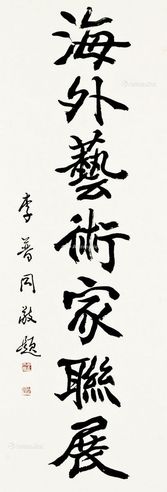 海外藝術家聯展
李普同敬題